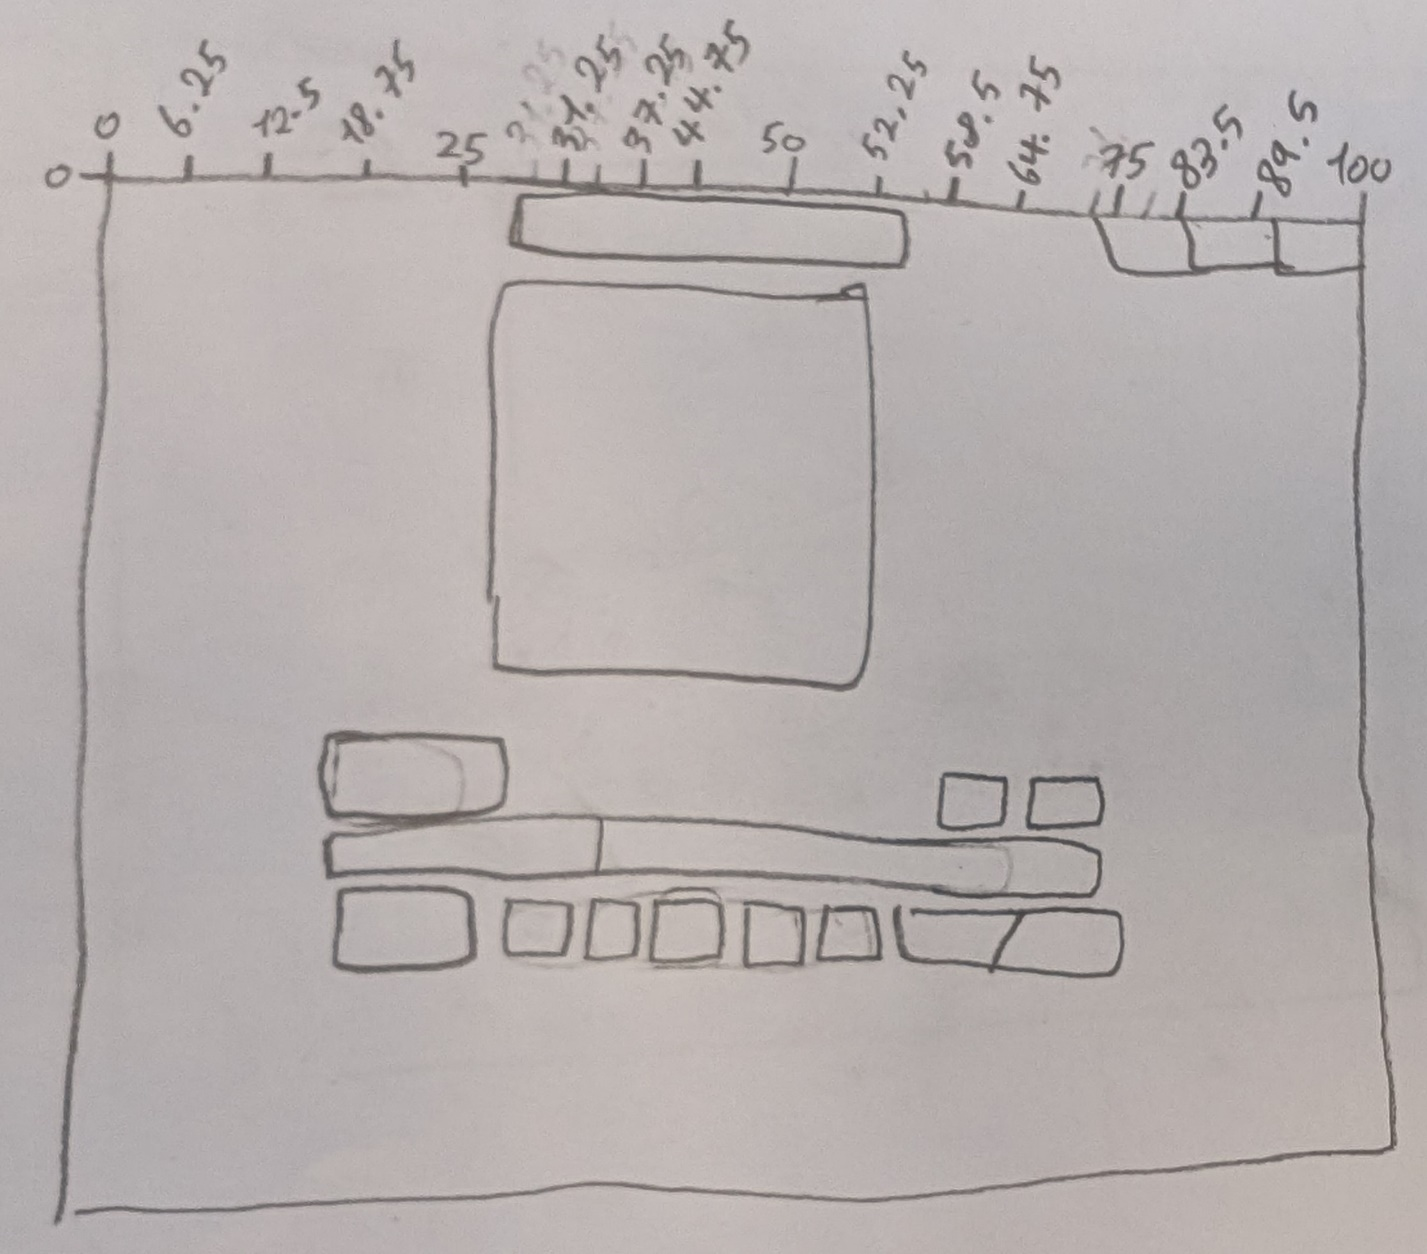 0 6.25 12.5 18.75 25 31.25 37.25 44.75 50 52.25 58.5 64.75 75 83.5 89.5 100
0